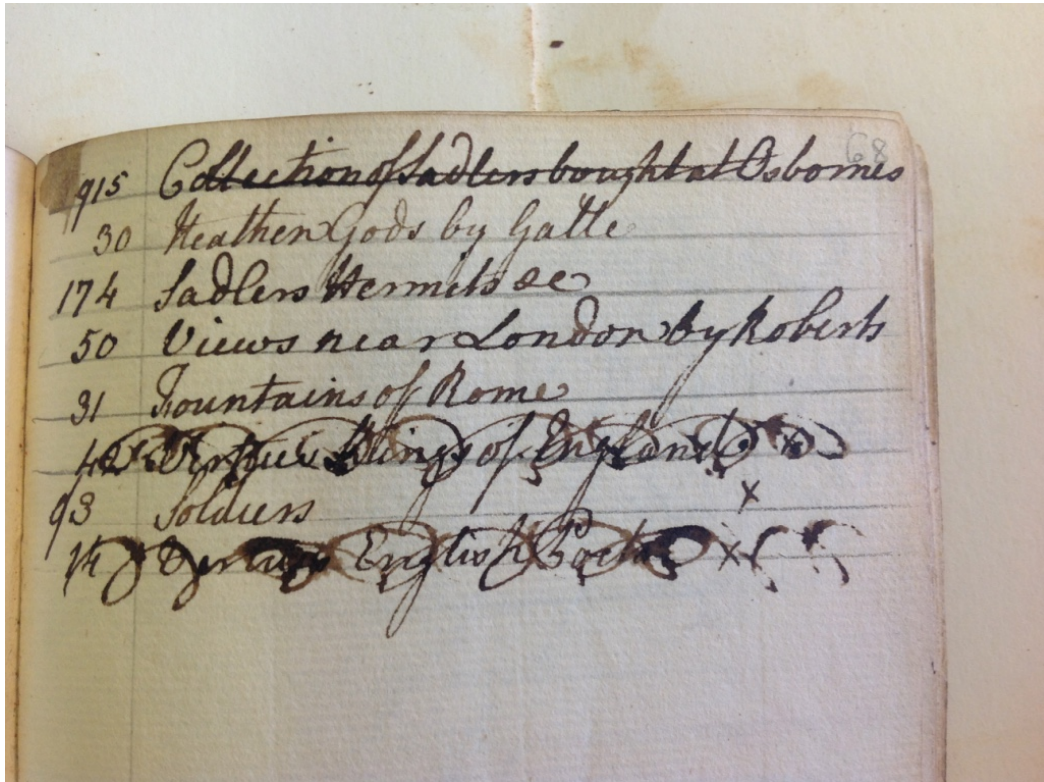 68
915 Collection of Sadlers bought at Osbornes
30 Heathen Gods by Galle
174 Sadlers Hermits &c
50 Views near London by Roberts
31 Fountains of Rome
42 Vertues Kings of England
93 Soldiers x
14 Vertues English Poets x